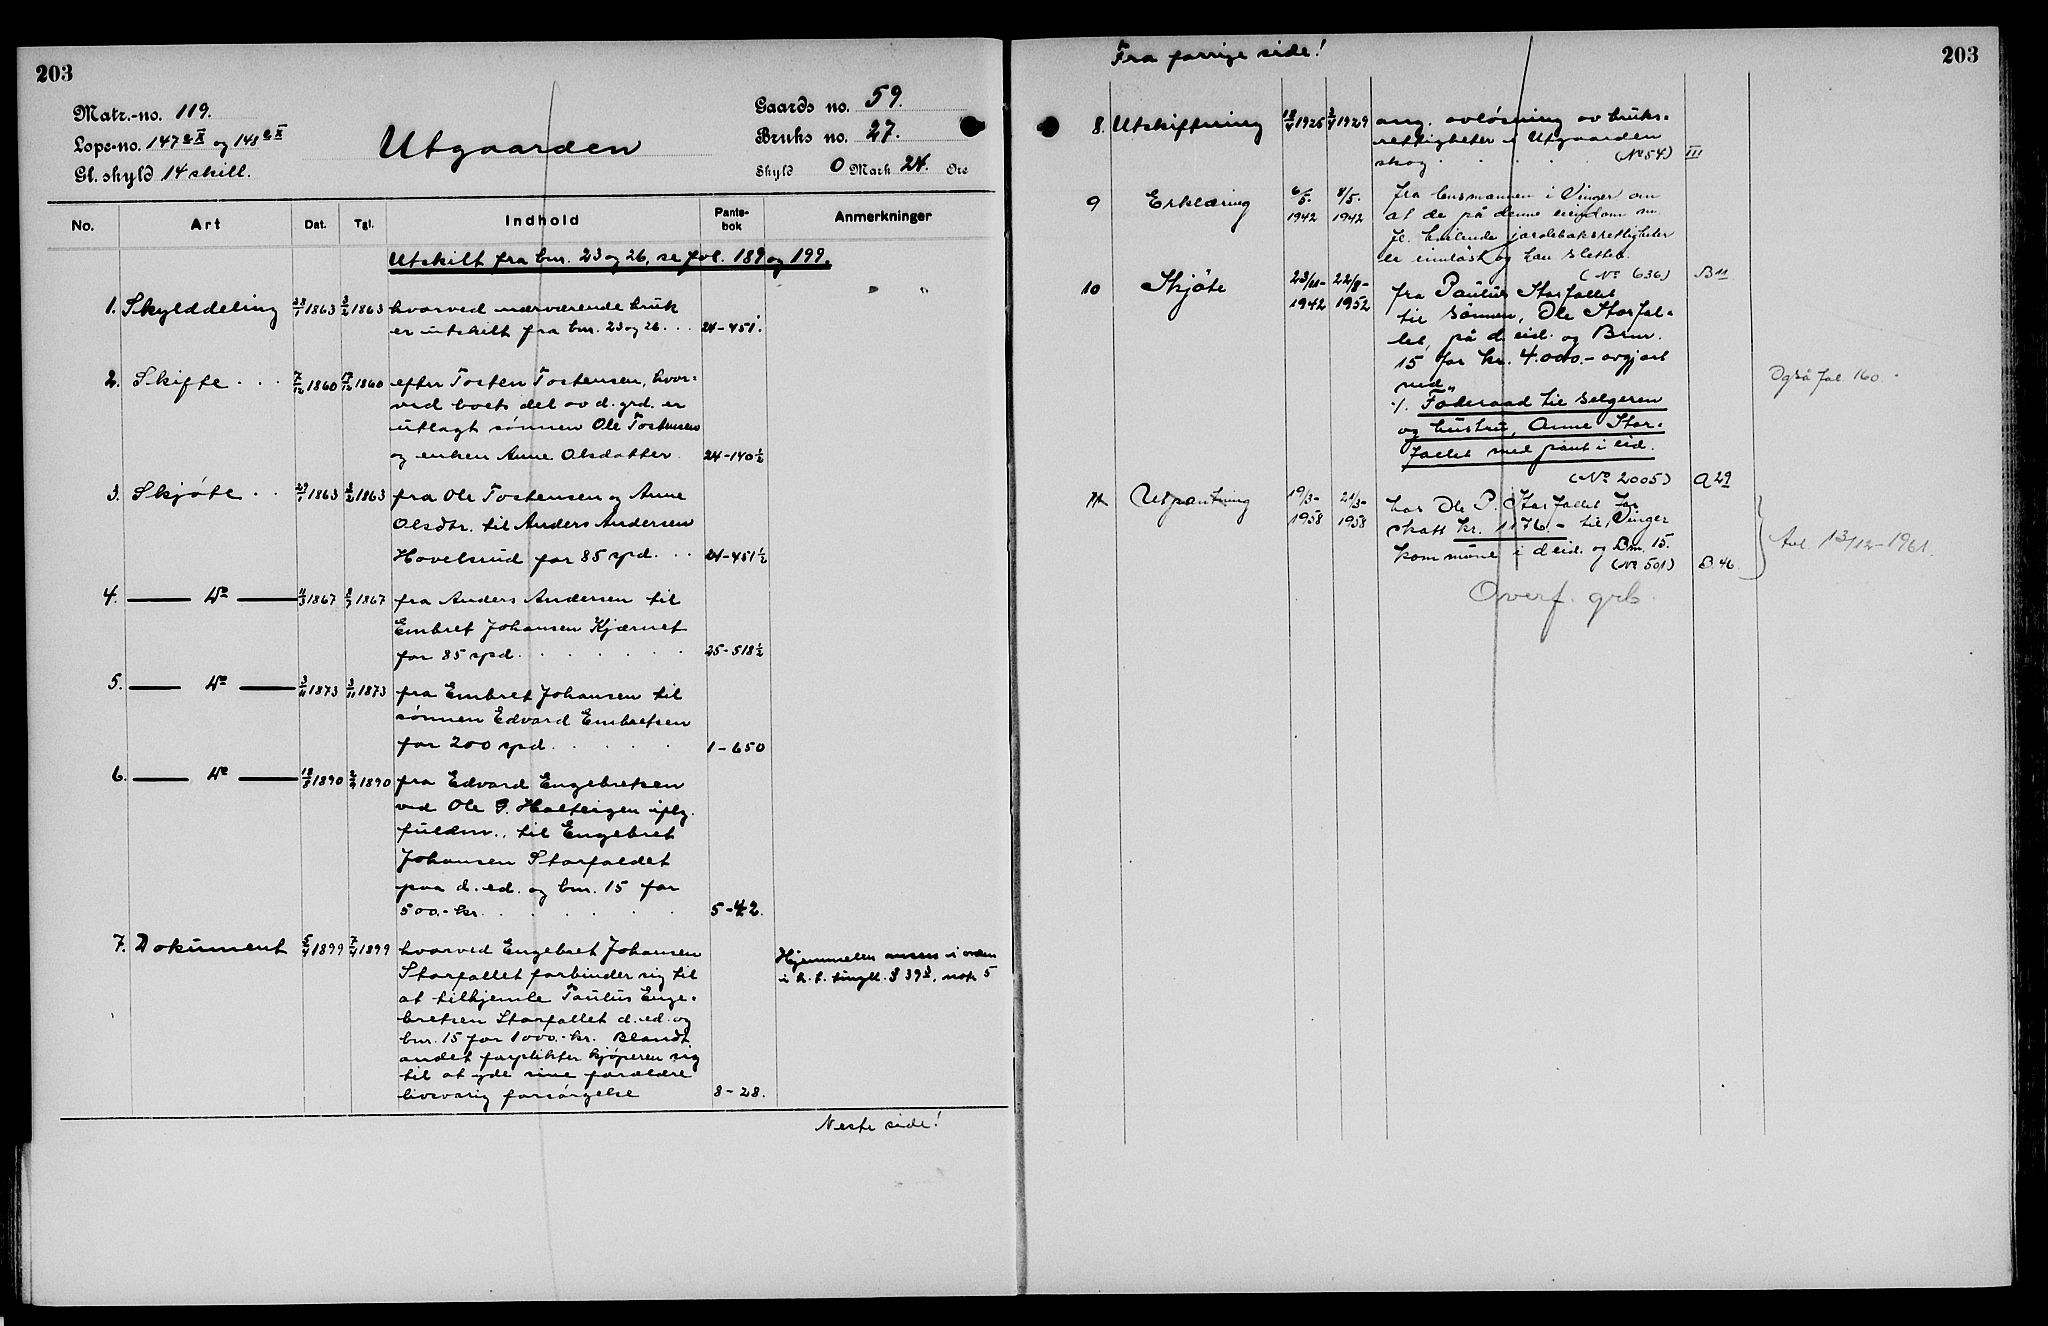 203
Matr.-no. 119.
Løpe-no. 147 og 148
Gl. skyld 14 skill.
Utgaarden
Gaards no. 59.
Bruks no. 27.
Skyld 0 Mark 24. Øre
No. Art Dat. Tgl. Indhold Pante-bok Anmerkninger
Utskilt fra bnr. 23 og 26, se fol. 189 og 199.
1. Skylddeling 1863 3/2 1863 hvorved nærværende bruk
er utskilt fra bnr. 23 og 26. . . 24-451.
2. Skifte . . . 7/12 1860 17/12 1860 efter Tosten Tostensen, hvor=
ved boets del av d. grd. er
utlagt sønnen Ole Tostensen
og enken Anne Olsdatter 24-140 1/2
3. Skjøte . . 1863 3/2 1863 fra Ole Tostensen og Anne
Olsdtr. til Anders Andersen
Hovelsrud for 85 spd. . . 24-451 1/2
4. — Do — 1867 1867 fra Anders Andersen til
Embret Johansen Kjærnet
for 85 spd. . . . . . . 25-518 1/2
5. — Do — 3/11 1873 3/11 1873 fra Embret Johansen til
sønnen Edvard Embretsen
for 200 spd. . . . . . 1-650
6. — Do — 1890 1890 fra Edvard Engebretsen
ved Ole P. Holteigen iflg.
fuldm., til Engebret
Johansen Storfaldet
paa d. ed. og bnr. 15 for
500.- kr. . . . . . 5-42.
7. Dokument 5/4 1899 7/4 1899 hvorved Engebret Johansen
Storfallet forbinder sig til
at tilhjemle Paulus Enge=
bretsen Storfallet d. ed. og
bnr. 15 for 1000.- kr. Blandt
andet forplikter kjøperen sig
til at yde sine forældre
livsvarig forsørgelse 8-28.
Hjemmelen anses i orden
i h. t. tingl. § 39, note 5
Neste side!
Fra forrige side!
203
8. Utskiftning 1925 1929 ang. avløsning av bruks=
rettigheter i Utgaarden
skog . . . . . (No 54) III
9 Erklæring 6/5. 1942 8/5. 1942 fra lensmannen i Vinger om
at de på denne eiendom m.
fl. heilende jordeboksrettigheter
er innløst og kan slettes.
(No 636) B 11
10 Skjøte 23/11- 1942 22/8- 1952 fra Paulus Storfallet
til sønnen, Ole Storfal=
let, på d. eid. og Bnr.
15 for kr. 4.000.- avgjort
med
./. Føderaad til selgeren
og hustru, Anne Stor=
fallet med pant i eid.
(No 2005) A 29
Også fol. 160.
11 Utpantning 19/3- 1958 21/3- 1958 hos Ole P. Storfallet for
skatt kr. 1176.- til Vinger
kommune i d eid. og Bnr. 15.
(No 501) B.46.
Avl. 13/12-1961.
Overf. grb.